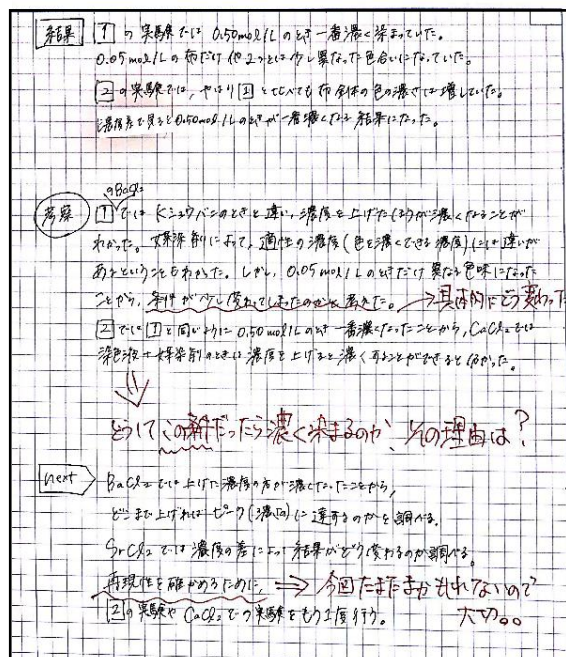 結果 ① の実験では 0.50mol/L のとき一番濃く染まっていた。
0.05mol/L の布だけ他2つとは少し異なった色合いになっていた。
② の実験では、やはり ① と比べても布全体の色の濃さは増していた。
濃度差で見ると0.50mol/L のときが一番濃くなる結果になった。
のBaCl₂
考察 ① では Kミョウバンのときと違い、濃度を上げたほうが濃くなることが
わかった。媒染剤によって、適性の濃度(色を濃くできる濃度)には違いが
あるということもわかった。しかし、0.05mol/L のときだけ異なる色味になった
ことから、条件が少し変わってしまったのかと考えた。→具体的にどう変わった
② では ① と同じように 0.50mol/L のとき一番濃くなったことから、CaCl₂ では
染色液+媒染剤のときは濃度を上げると濃くすることができると分かった。
どうしてこの条件だったら濃く染まるのか、その理由は?
next BaCl₂ では上げた濃度の方が濃くなったことから、
どこまで上げればピーク(濃度)に達するのかを調べる。
SrCl₂ では濃度の差によって結果がどう変わるのか調べる。
再現性を確かめるために、⇒今回たまたまかもしれないので
② の実験や CaCl₂ での実験をもう1度行う。 大切。。